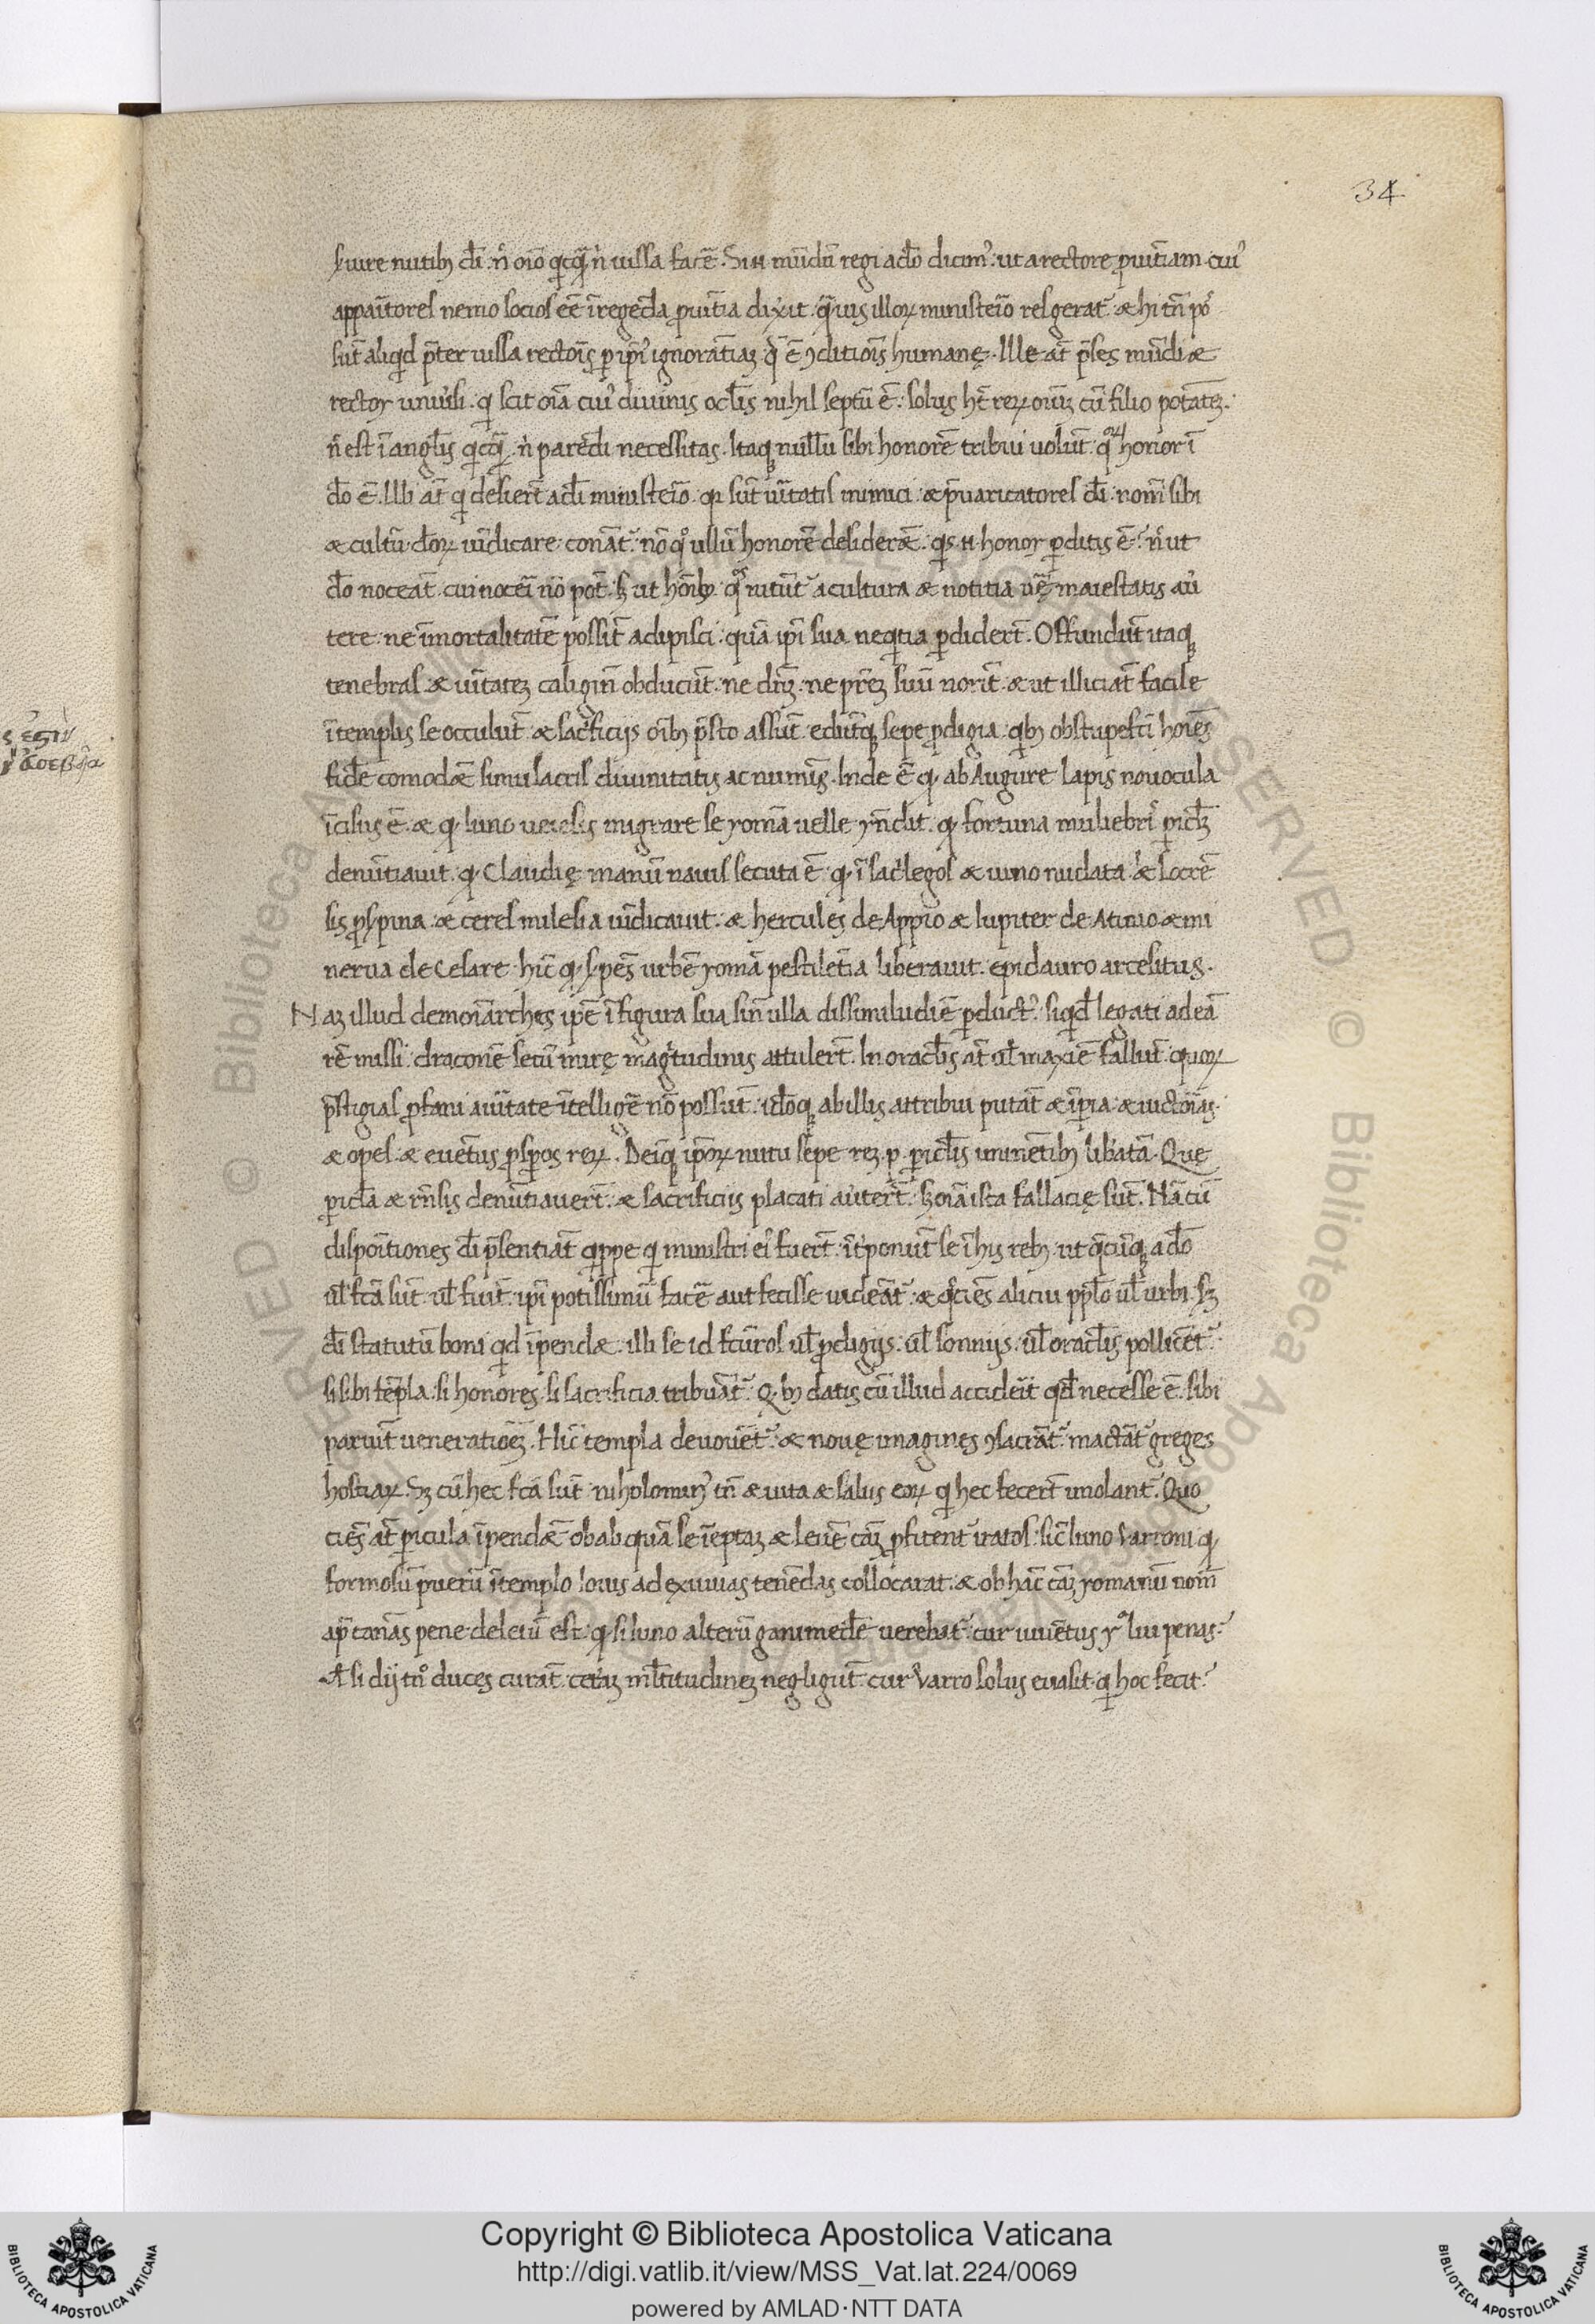 34
ς ἐστὶν
ἀσεβεία
s̄uire nutib; dī. n̄ oīo q̇cq̄ n̄ iussa facē. Si .n. mūdū regi a dō dicim᾽. ut a rectore ꝓuītiam. cui᾽
apparitores nemo socios eē ī regēda ꝓuītia dixit. q̄uis illoꝝ ministeīo res gerat᷑. & hi tn̄ pos
sūt aliq̇d p̄ter iussa rectoīs ꝑ ipī᾽ ignorātiaꝫ. q̇ ē ꝯditioīs humanę. Ille āt p̄ses mūdi &
rector uniūsi. q̇ scit oīa cui᾽ diuinis oclīs nihil septū ē. solus ht̄ reꝝ oīuꝫ cū filio potāteꝫ.
n̄ est ī anglīs q̇cq̄ n̄ parēdi necessitas. Itaqꝫ nullū sibi honorē tribui uolūt. q̇ꝝ honor ī
dō ē. Illi āt q̇ desierūt a dī ministeīo. q; sūt uītatis inimici. & p̄uaricatores dī. nom̄ sibi
& cultū dōꝝ uīdicare conāt᷑. nō q̊ ullū honorē desiderēt. q̇s .n. honor ꝑditis ē? n̄ ut
dō noceāt. cui nocēi nō pōt. sꝫ ut hōīb; q̊s nitūt᷑ a cultura & notitia uę̄ maiestatis au᾽
tere. ne īmortalitatē possīt adipisci. quā ipī sua neq̇tia ꝑdiderūt. Offundūt itaqꝫ
tenebras. & uītateꝫ caligin̄ obducūt. ne dn̄ꝫ. ne pr̄eꝫ suū norīt. & ut illiciāt facile
ī templis se occulūt & sac̓ficijs oīb; p̄sto assūt. edūtqꝫ sepe ꝓdigia. q̇b; obstupefti hoīēs
fidē comodēt simulacris diuinitatis ac numīs. Inde ē q; ab Augure lapis nouocula
īcisus ē. & q; Iuno ueiēsis migrare se romā uelle rn̄dit. q; fortuna muliebrī ꝑiclꝫ
denūtiauit. q; Claudię manū nauis secuta ē. q; ī sac̓legos & iuno nudata. & Locrē
sis ꝓs̄pina. & ceres milesia uīdicauit. & hercules de Appio & Iupiter de Atinio & mi
nerua de cesare. hīc q; s̄pēs urbē romā pestilētia liberauit. epidauro arcesitus.
Naꝫ illud demoīarches ipē ī figura sua sin̄ ulla dissimiludiē ꝑduct᾽. siq̇d legati ad eā
rē missi. draconē secū mirę magītudinis attulerūt. In oraclīs āt ul̄ maxīe fallūt. quoꝝ
p̄stigias ꝓfani a uītate ītelligē nō possūt. idōqꝫ ab illis attribui putāt & īꝑia. & uictoīas.
& opes. & euētus ꝓsꝑos reꝝ. Deīqꝫ ipōꝝ nutu sepe reꝫ .p. ꝑiclīs iminētib; libatā. Quę
ꝑicla & rn̄sis denūtiauerūt. & sacrificiis placati au᾽terūt. sꝫ oīa ista fallacię sūt. Nā cū
dispoītiones dī p̄sentiāt q̇ppe q̇ ministri ei᾽ fuerūt. īt̓ponūt se ī his reb; ut q̄cūqꝫ a dō
ul̄ fcā sūt. ul̄ fuīt. ipī potissimū facē aut fecisse uideāt᷑. & q̊ciēs alicui pplō ul̄ urbi. sꝫ
dī statutū boni q̇d īpendet. illi se id fcūros ul̄ ꝓdigijs. ul̄ somnijs. ul̄ oraclīs pollicēt᷑.
si sibi tēpla. si honores. si sacrificia tribuāt᷑. Q̇b; datis cū illud accideīt qd̄ necesse ē. sibi
pariūt ueneratioēꝫ. Hīc templa deuouēt᷑. & nouę imagines ꝯsacrāt᷑. mactāt᷑ greges
hostiaꝝ. Sꝫ cū hec fcā sūt. nihilomin᾽ tn̄ & uita & salus eoꝝ q̇ hec fecerūt imolant᷑. Quo
ciēs āt ꝑicula īpendēt ob aliquā se īeptaꝫ & leuē caꝫ ꝓfitent᷑ iratos. sic̄ Iuno Varroni. q;
formosū puerū ī templo Iouis ad exuuias tenēdas collocarat. & ob hāc caꝫ romanū nom̄
ap̄ cannas pene deletū est. q; si Iuno alterū ganimedē uerebat᷑. cur iuuētus r᾽ lui penas?
At si dij tm̊ duces curāt. ceteraꝫ ml̄titudineꝫ negligūt. cur Varro solus euasit. q̇ hoc fecit?
Copyright © Biblioteca Apostolica Vaticana
http://digi.vatlib.it/view/MSS_Vat.lat.224/0069
powered by AMLAD·NTT DATA